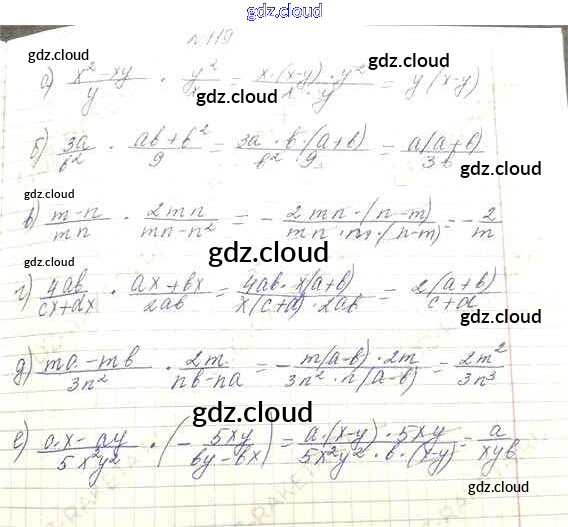 gdz.cloud
№119
gdz.cloud gdz.cloud
а) (x² - xy)/y · y²/x = (x·(x-y)·y²)/(x·y) = y(x-y)
gdz.cloud gdz.cloud
б) 3a/b² · (ab+b²)/9 = (3a·b·(a+b))/(b²·9) = a(a+b)/3b
gdz.cloud gdz.cloud
в) (m-n)/mn · 2mn/(mn-n²) = - (2mn·(n-m))/(mn·n·(n-m)) = - 2/m
gdz.cloud
gdz.cloud
г) 4ab/(cx+dx) · (ax+bx)/2ab = (4ab·x(a+b))/(x(c+d)·2ab) = 2(a+b)/(c+d)
gdz.cloud gdz.cloud
д) (ma-mb)/3n² · 2m/(nb-na) = - (m(a-b)·2m)/(3n²·n(a-b)) = 2m²/3n³
gdz.cloud
gdz.cloud
е) (a·x-ay)/5x²y² · (- 5xy/(by-bx)) = (a·(x-y)·5xy)/(5x²y²·b·(x-y)) = a/xyb
gdz.cloud gdz.cloud
gdz.cloud